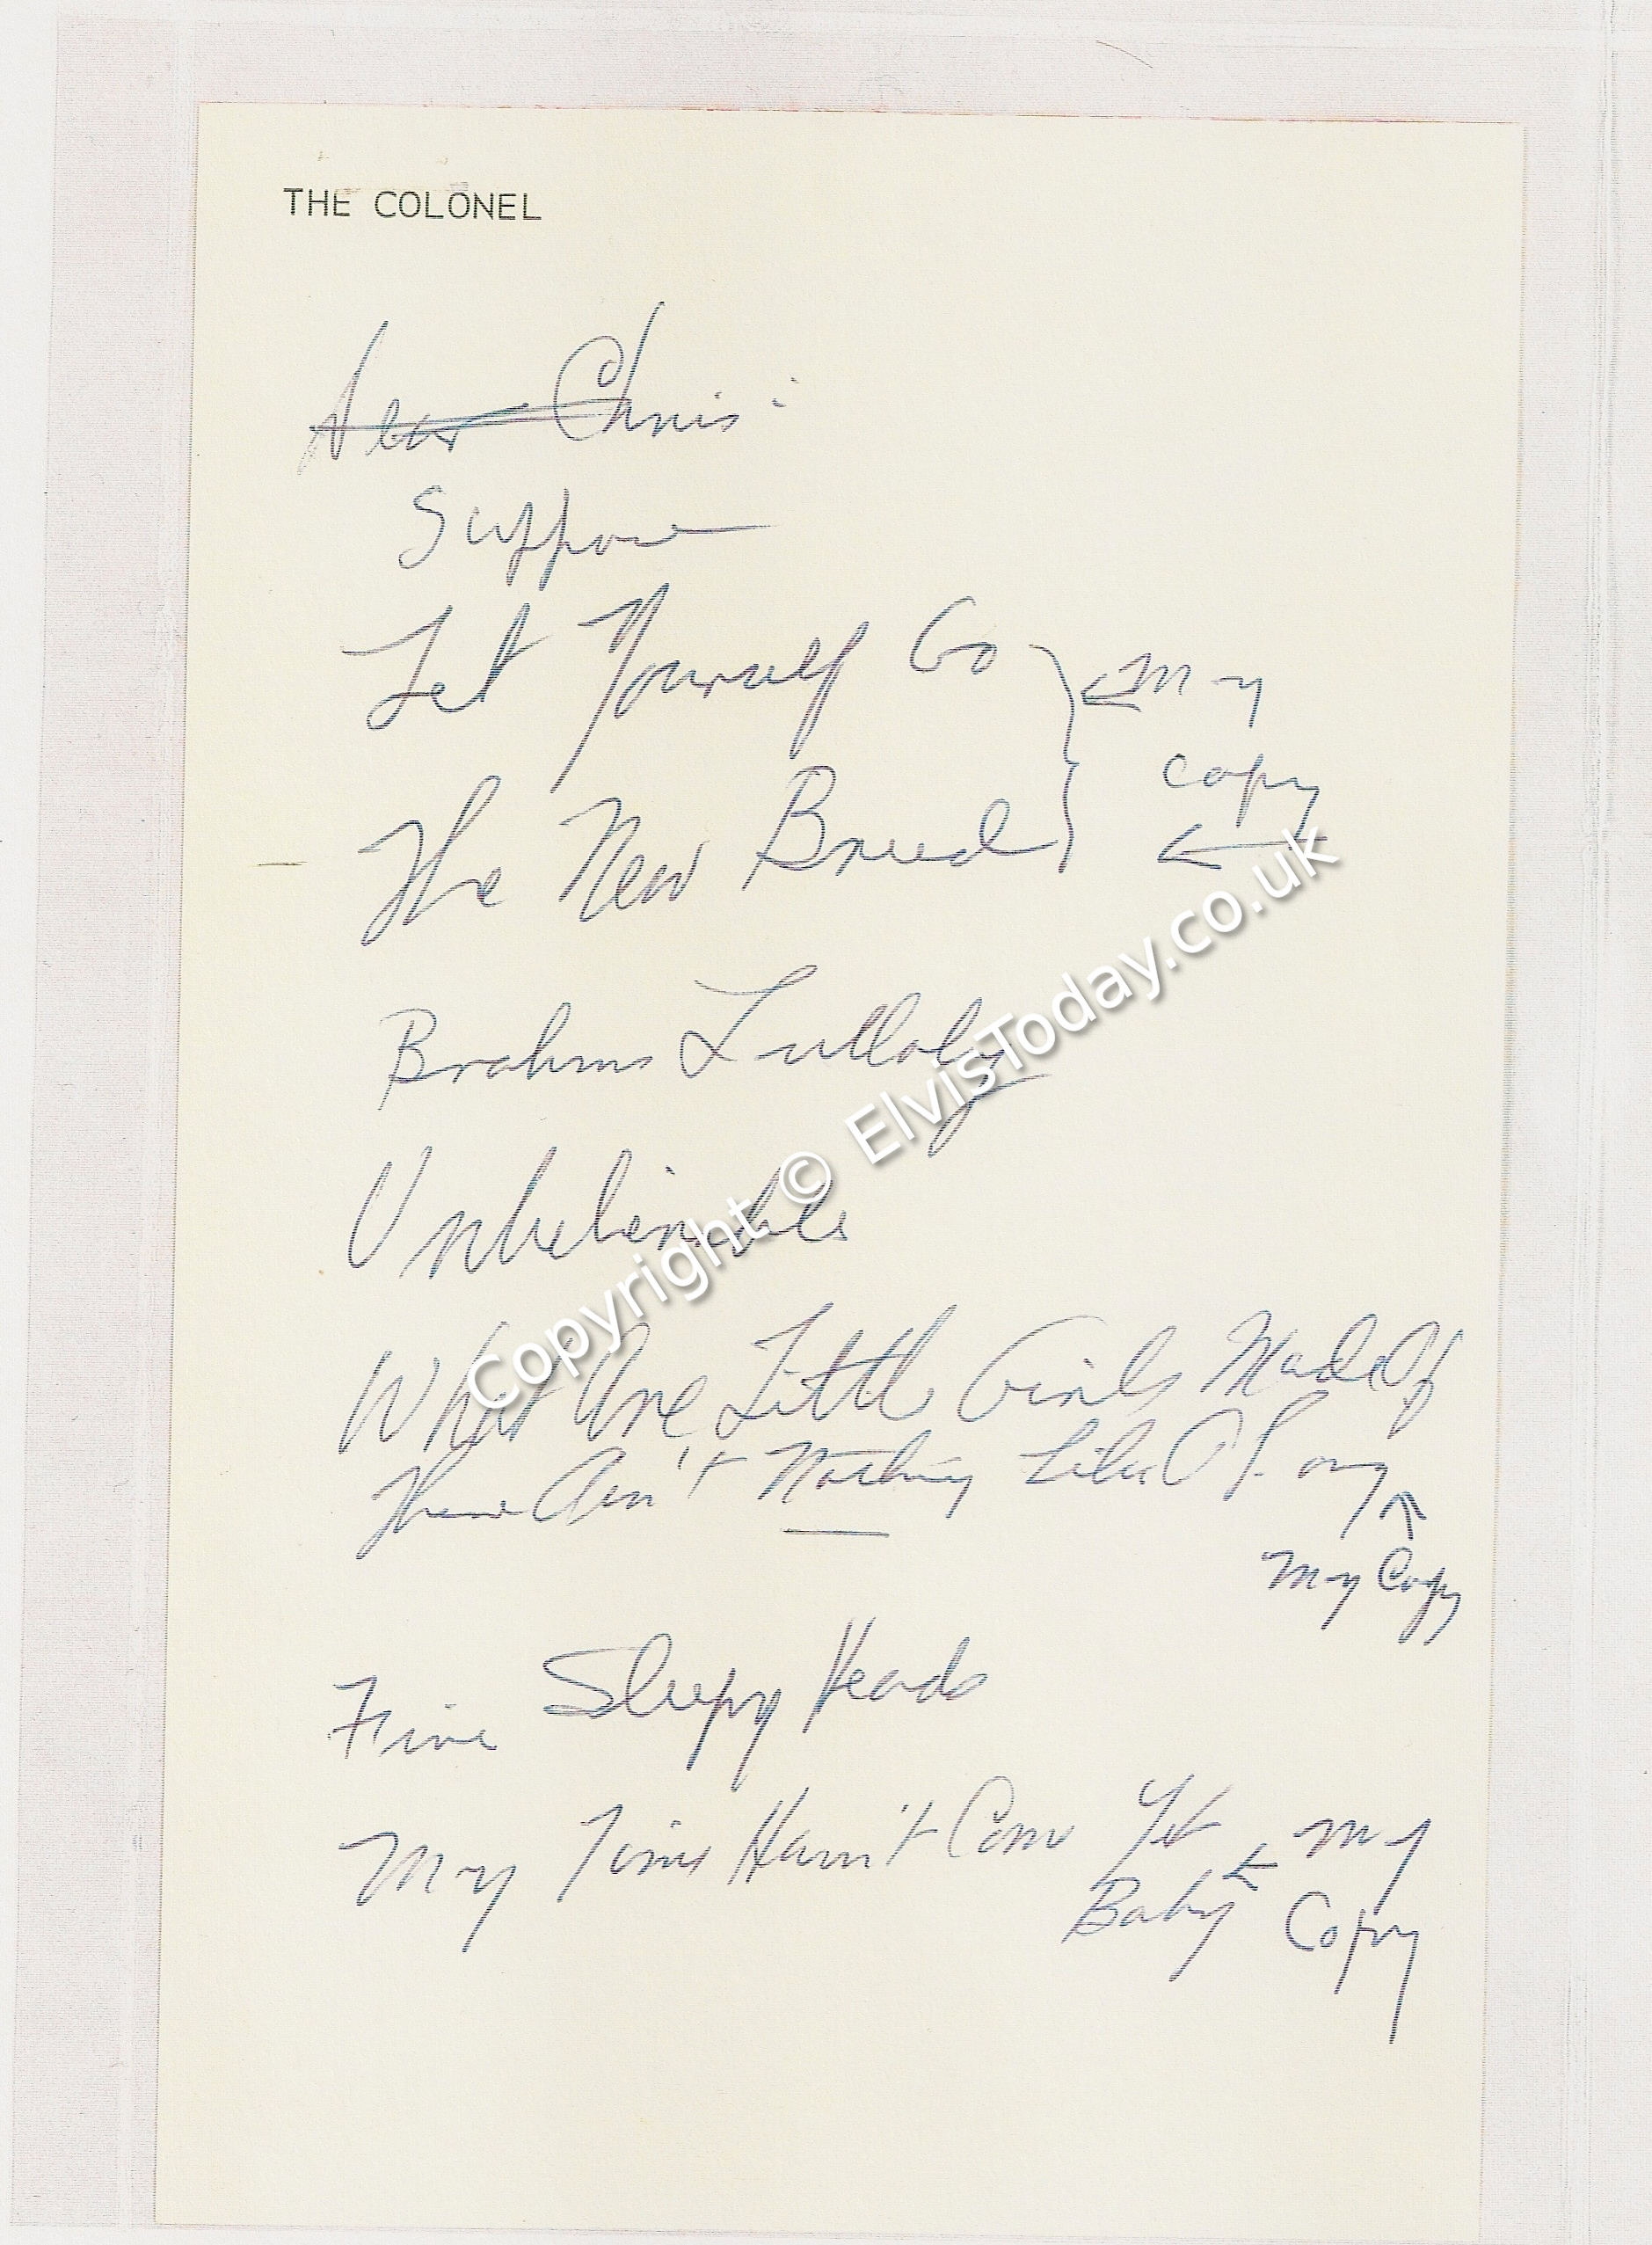 THE COLONEL
Dear Chris:
Suppose
Let Yourself Go } ← My
copy
The New Breed ←
Brahms Lullaby
Unbelievable
What Are Little Girls Made Of
There Ain't Nothing Like A Song
↑
My Copy
Five Sleepy Heads
My Time Hasn't Come Yet ← My
Baby Copy
Copyright © ElvisToday.co.uk